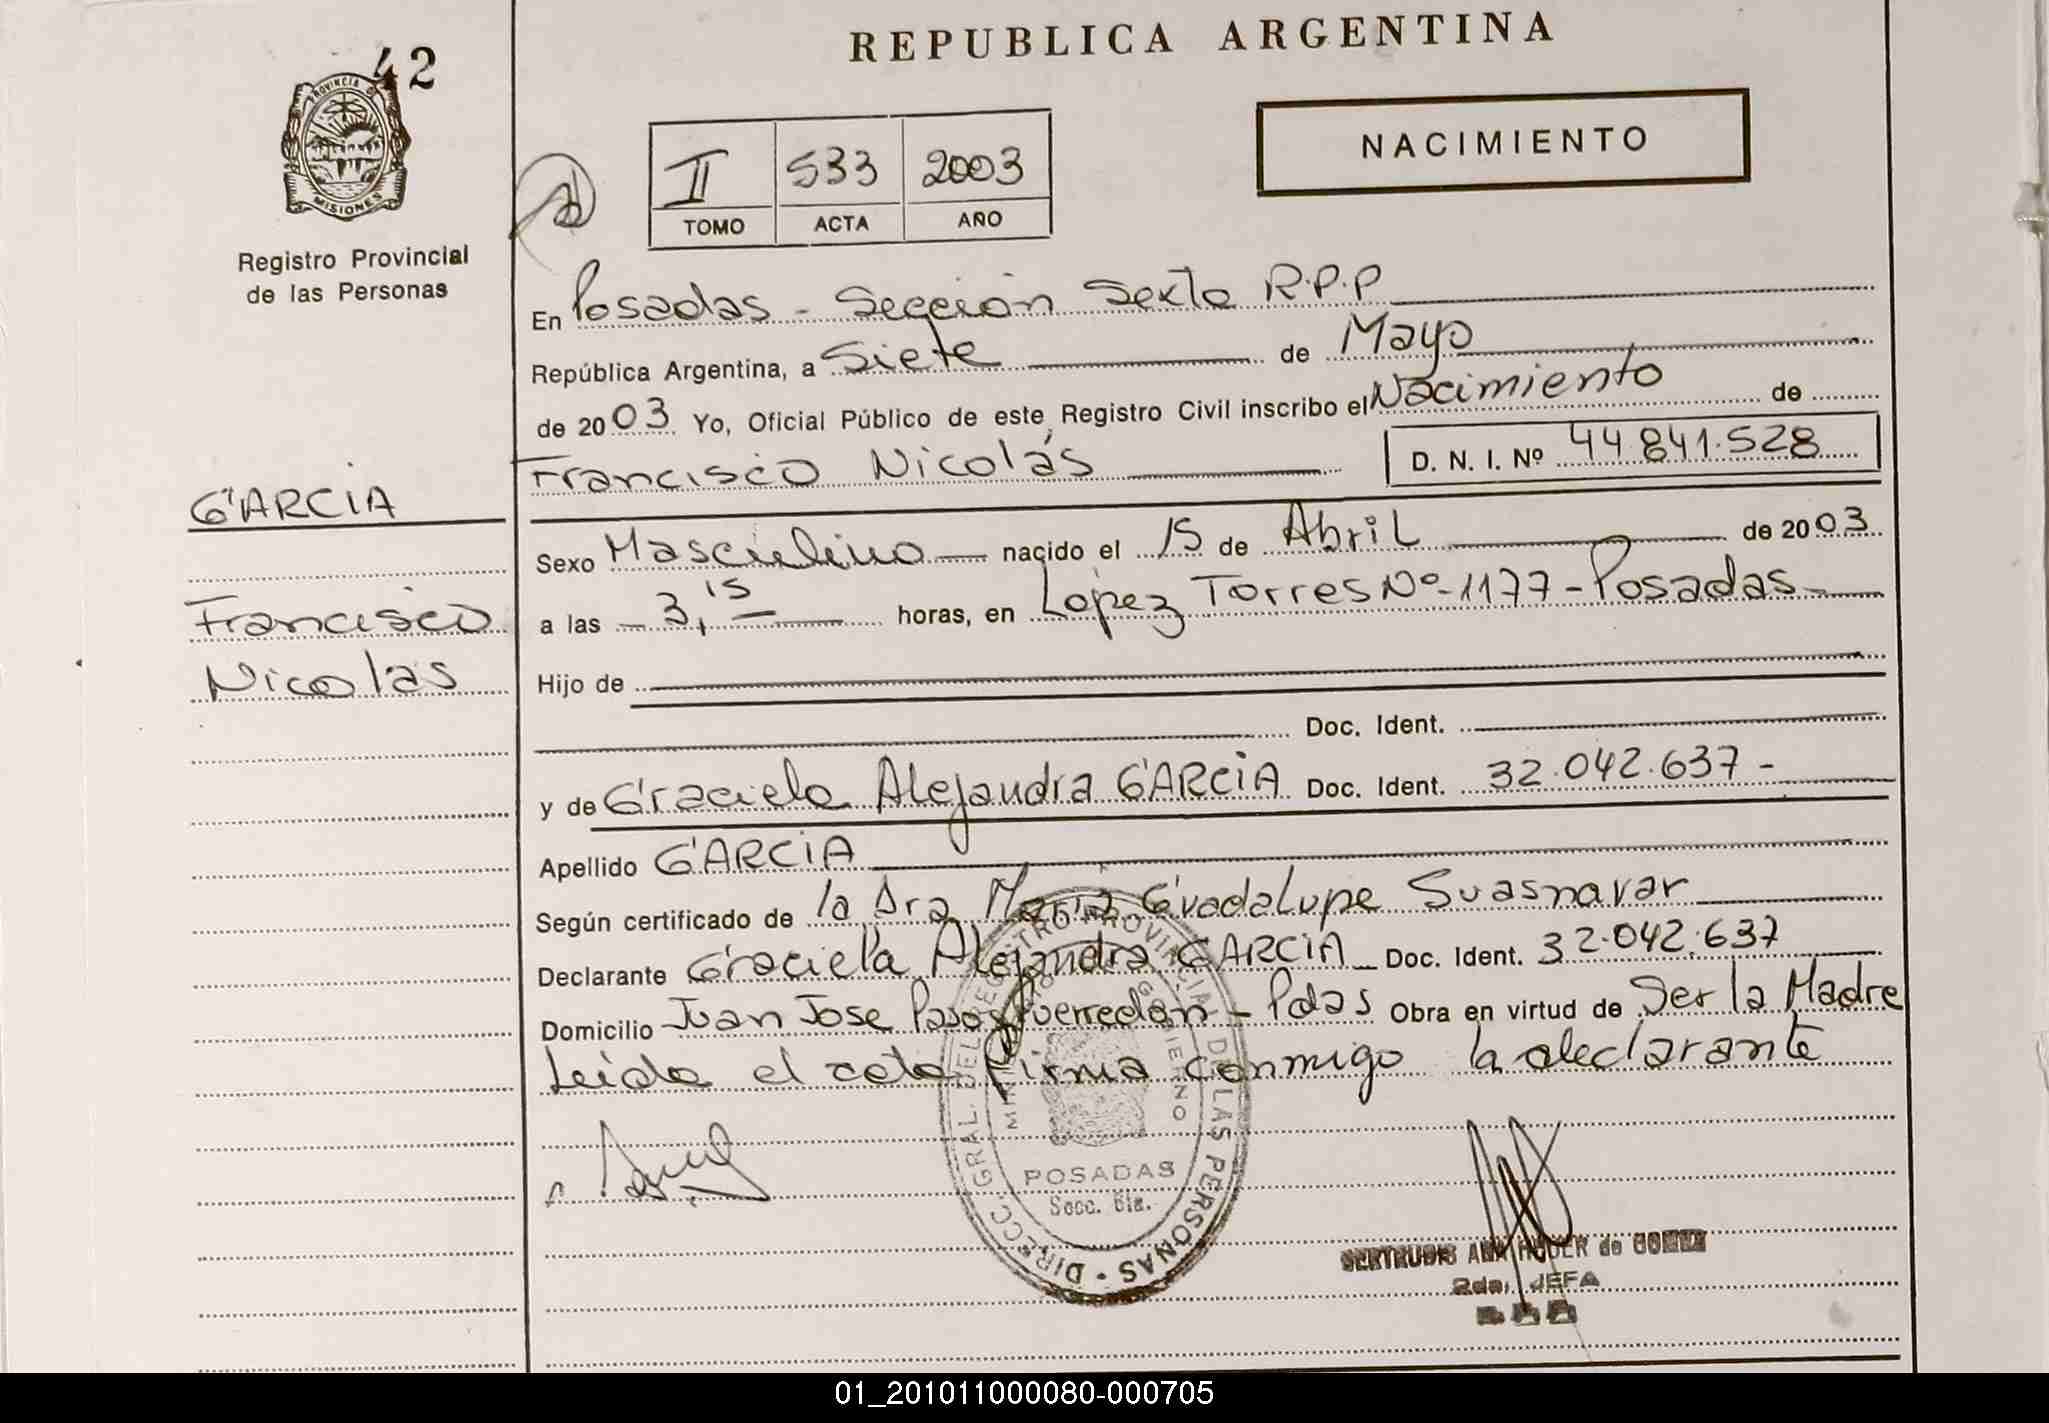 REPUBLICA ARGENTINA
42
PROVINCIA D
MISIONES
Registro Provincial
de las Personas
II 533 2003
TOMO ACTA AÑO
NACIMIENTO
En Posadas - Sección Sexta R.P.P
República Argentina, a Siete de Mayo
de 2003 Yo, Oficial Público de este Registro Civil inscribo el Nacimiento de
Francisco Nicolás D. N. I. Nº 44.841.528
GARCIA
Francisco
Nicolas
Sexo Masculino nacido el 15 de Abril de 2003
a las 3,15 horas, en Lopez Torres Nº-1177-Posadas-
Hijo de
Doc. Ident.
y de Graciela Alejandra GARCIA Doc. Ident. 32.042.637-
Apellido GARCIA
Según certificado de la Dra Maria Guadalupe Suasnavar
Declarante Graciela Alejandra GARCIA Doc. Ident. 32.042.637
Domicilio Juan Jose Paso y - Pdas Obra en virtud de Ser la Madre
Leida el acta firma conmigo la declarante
DIRECC. GRAL. DEL REGISTRO PROVINCIAL DE LAS PERSONAS
GOBIERNO
POSADAS
Secc. 6ta.
GERTRUDIS ANA de GOMEZ
2da. JEFA
01_201011000080-000705